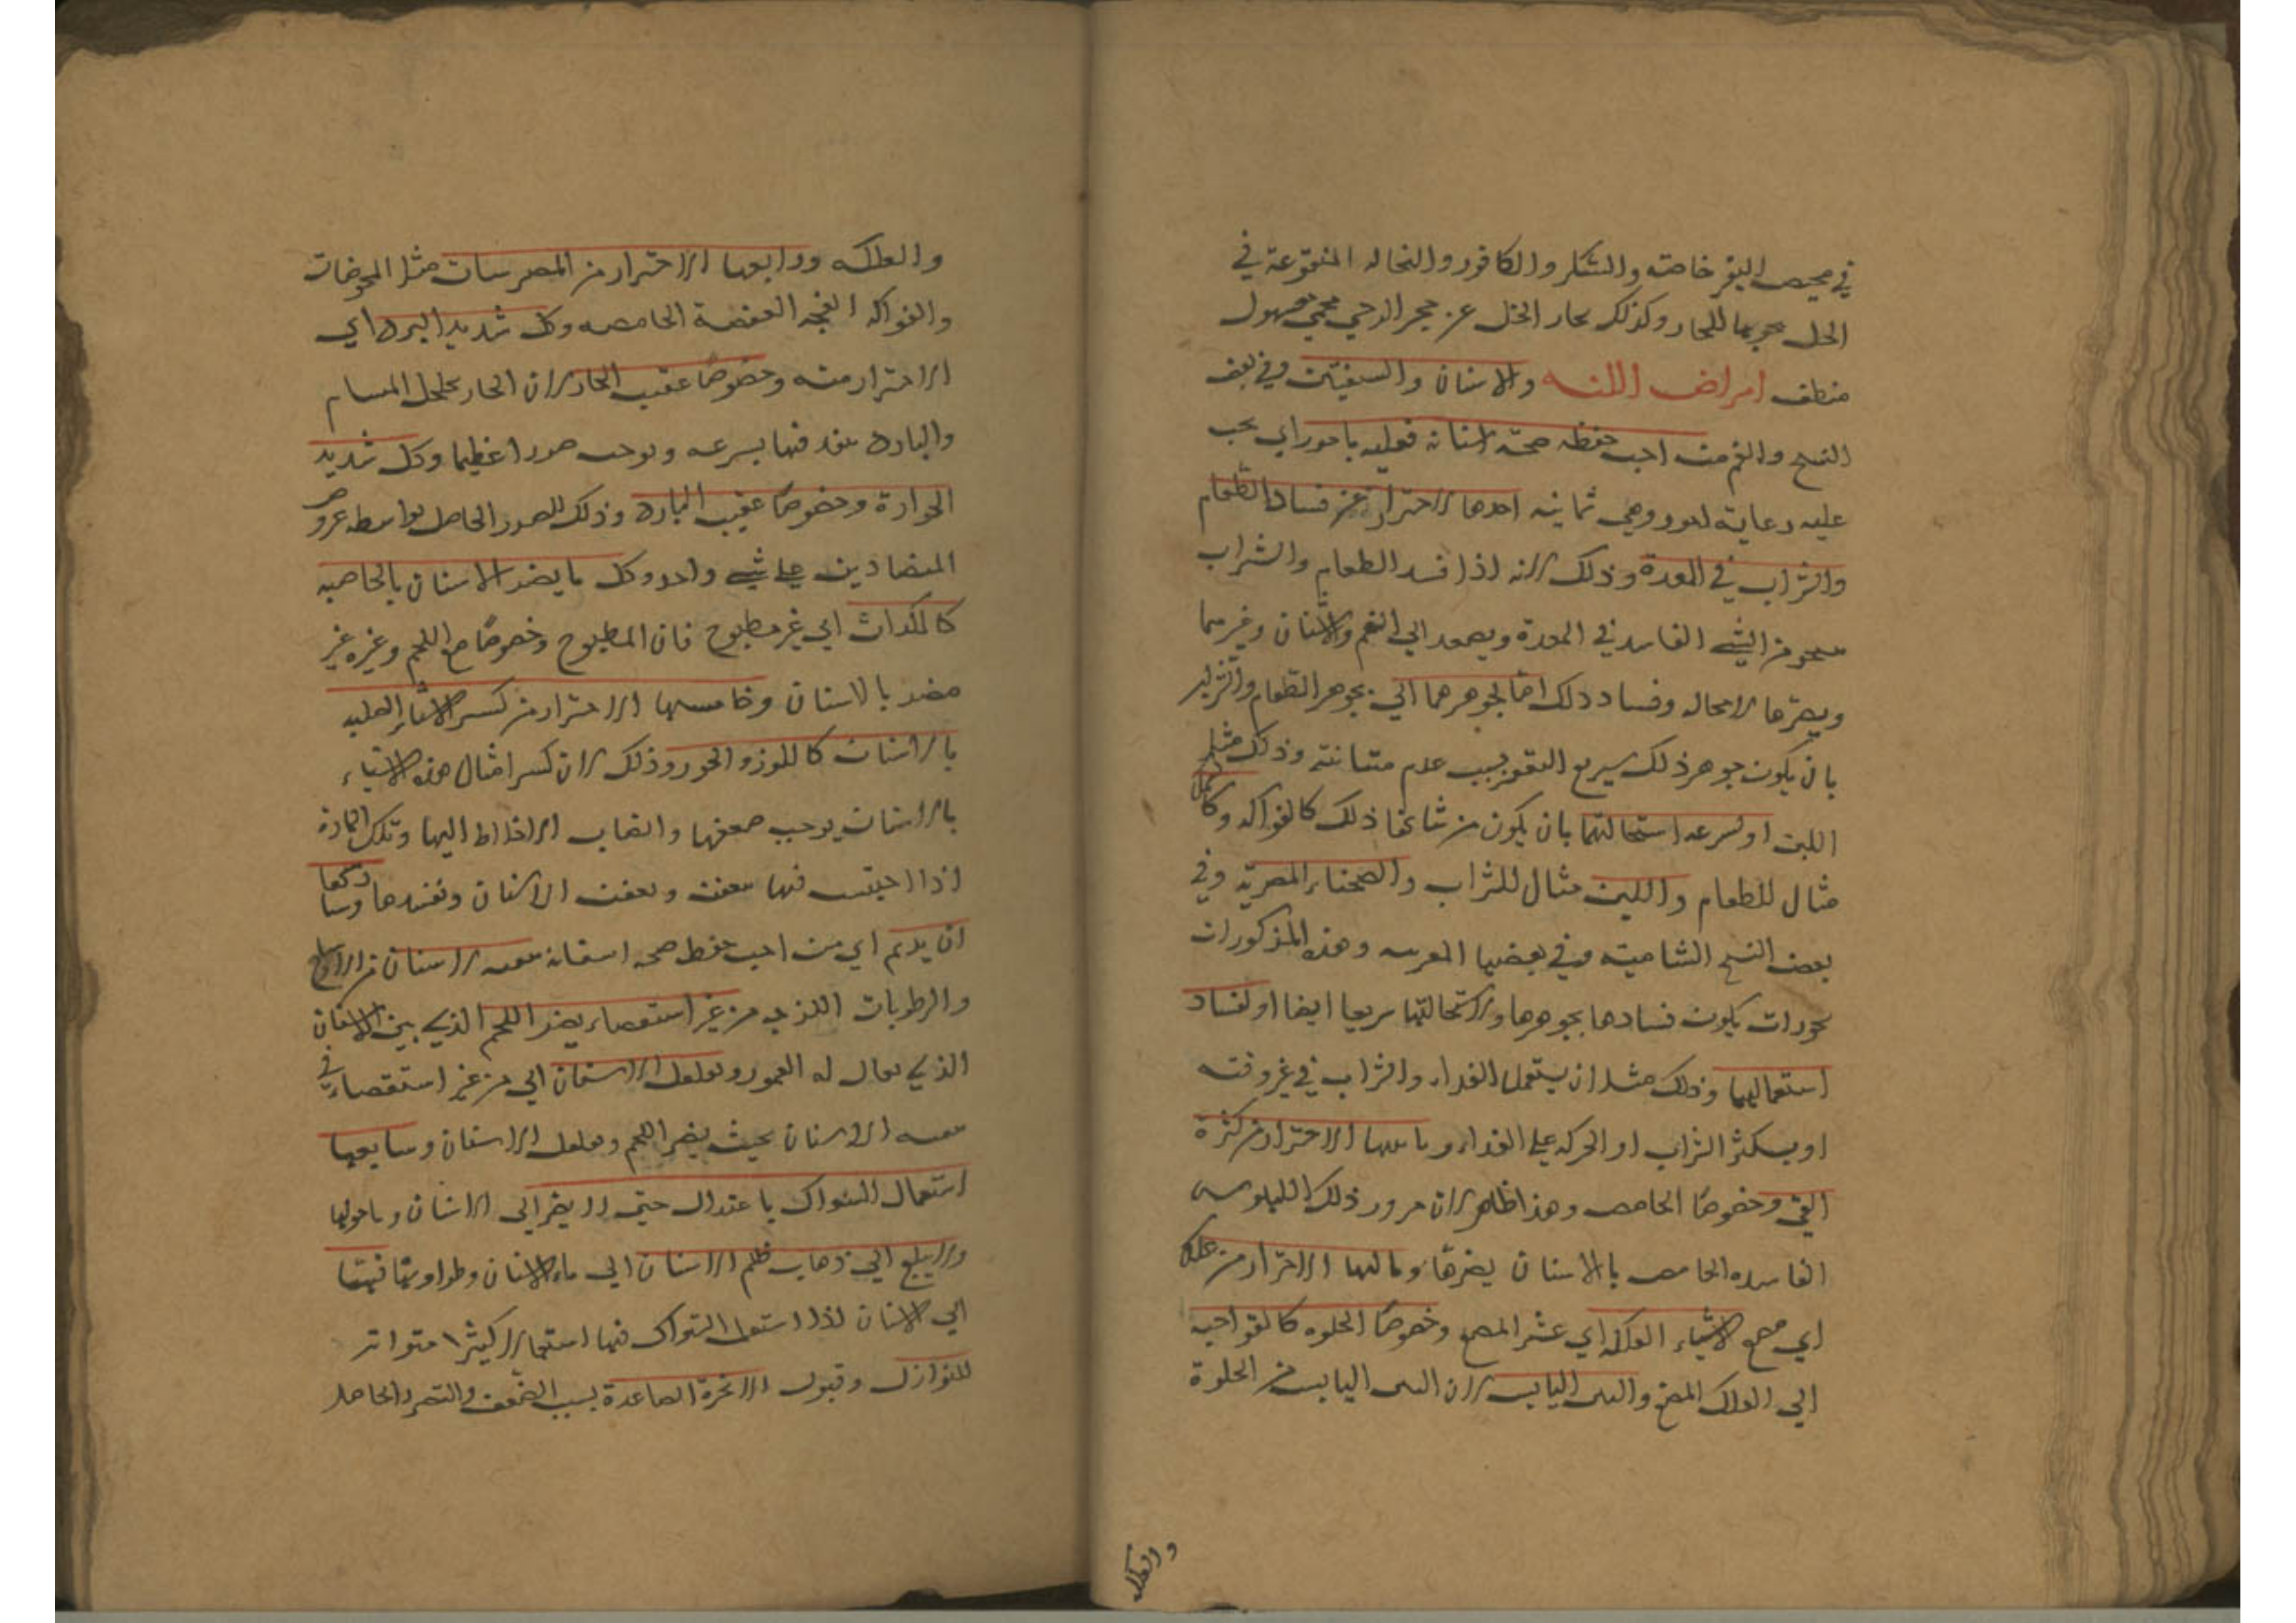 في محيض البقر خاصة والسكر والكافور والنخاله المنقوعة في
الخل بحورها للحار وكذلك بحار الخل عن حجر الرحي محمي مهول
منطف امراض اللثه والاسنان والشفتين وفي بعض
النسخ والفم من احب حفظ صحة اسنانه فعليه بامور اي يجب
عليه رعاية امور وهي ثمانيه احدها الاحتراز عن فساد الطعام
والشراب في المعدة وذلك لانه اذا فسد الطعام والشراب
من الشي الفاسد في المعدة ويصعد الي الفم والاسنان وغيرهما
ويضرها لا محاله وفساد ذلك اما لجوهرهما اي بجوهر الطعام والشراب
بان يكون جوهر ذلك سريع التعفن بسبب عدم متانته وذلك مثل
اللبن او لسرعه استحالتهما بان يكون من شانها ذلك كالفواكه وكالسمك
مثال للطعام واللبن مثال للشراب والصحناء المصرية وفي
بعض النسخ الشاميه وفي بعضها المعربه وهذه المذكورات
بحورات يكون فسادها بجوهرها ولاستحالتها سريعا ايضا او لفساد
استعمالهما وذلك مثل ان يستعمل الغداء والشراب في غير وقته
او يسكثر الشراب او الحركه علي الغداء وثانيها الاحتراز من كثرة
القي وخصوصا الحامض وهذا ظاهر لان مرور ذلك الكيلوس
الفاسده الحامض بالاسنان يضرها وثالثها الاحتراز من علك
اي مضغ الاشياء العلكه اي عسر المضغ وخصوصا الحلوه كالقواحيه
اي العلك المضغ والتين اليابس لان التين اليابس من الحلوة
والعلكه
والعلكه ورابعها الاحتراز من المضرسات مثل الحموضات
والفواكه الفجه العفصة الحامضه وكل شديد البرد اي
الاحتراز منه وخصوصا عقيب الحار لان الحار يخلخل المسام
والبارد ينفد فيها بسرعه ويوجب ضررا عظيما وكل شديد
الحرارة وخصوصا عقيب البارد وذلك للضرر الحاصل بواسطه عروض
المتضادين علي شي واحد وكل ما يضر الاسنان بالخاصيه
كالكراث اي غير مطبوخ فان المطبوخ وخصوصا مع اللحم وغيره غير
مضر بالاسنان وخامسها الاحتراز من كسر الاشياء الصلبه
بالاسنان كاللوز والجوز وذلك لان كسر امثال هذه الاشياء
بالاسنان يوجب ضعفها وانصاب الاخلاط اليها وتلك المادة
اذا احتبست فيها تعفنت وتعفن الاسنان وتفسدها وسادسها
ان يديم اي من احب حفظ صحه اسنانه تنقيه الاسنان من الاوساخ
والرطوبات اللزجه من غير استقصاء يضر اللحم الذي بين الاسنان
الذي يقال له العمور ويقلقل الاسنان اي من غير استقصاء في
تنقيه الاسنان بحيث يضر اللحم ويقلقل الاسنان وسابعها
استعمال السواك باعتدال حتي لا يضر الي الاسنان وما حولها
ولا يبلغ الي ذهاب ظلم الاسنان الي ماء الاسنان وطراوتها فيهيئها
اي الاسنان اذا استعمل السواك فيها استعمالا كثيرا متواتر
للنوازل وقبول الابخرة الصاعدة بسبب الضعف والتضرر الحاصل